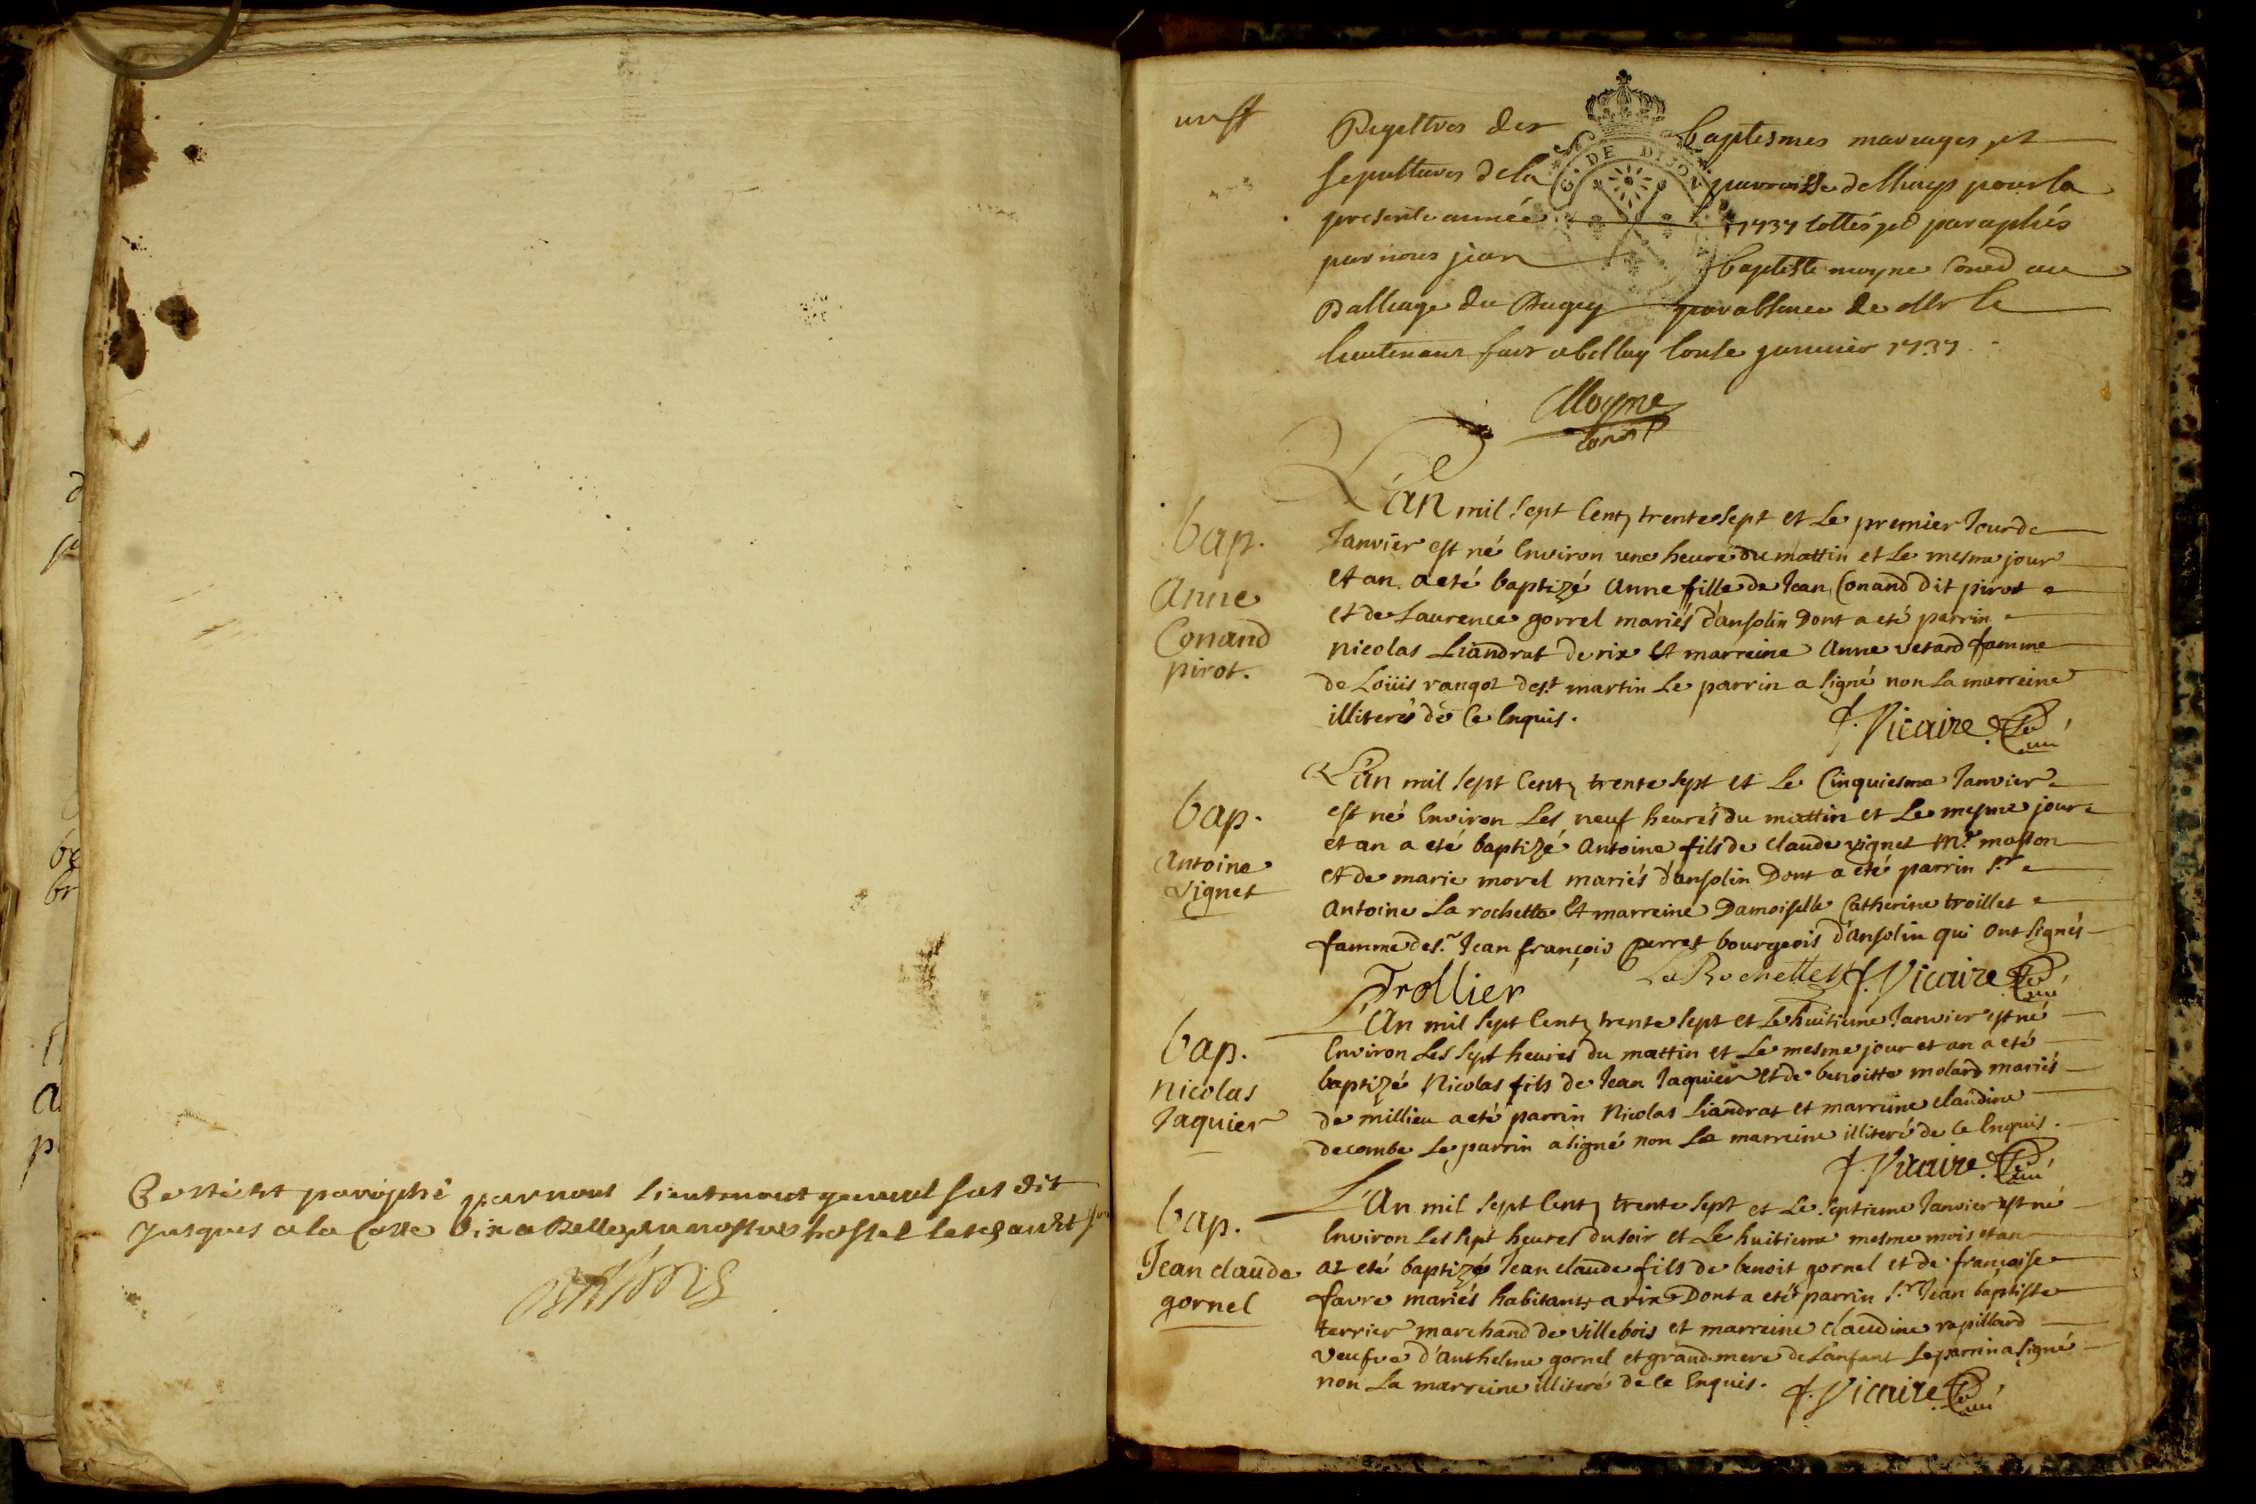 paraphé par nous Lieutenant general sus dit
Jusques a la Cotte dix a Belley
Registres des baptesmes mariages et
sepultures de la parroisse pour la
presente année 1737 cottés et paraphés
par nous jean baptiste moyne Cons.er au
Balliage du Bugey par absence de Mr le
lieutenant fait a belley janvier 1737
Moyne
G. DE DIJON
L'an mil sept Cent trente sept et Le premier Jour de
Janvier est né Environ une heure du mattin et Le mesme jour
et an a eté baptizé Anne fille de Jean Conand dit pirot
et de Laurence gorrel mariés d'ansolin Dont a eté parrin
nicolas Liandrat de rix Et marreine Anne vetard famme
de Loüis rangot de s.t martin Le parrin a signé non La marreine
illiteré de Ce Enquis.
f. Vicaire
bap.
Anne
Conand
pirot.
L'an mil sept Cent trente sept et Le Cinquiesme Janvier
est né Environ Les neuf heures du mattin et Le mesme jour
et an a eté baptizé Antoine fils de claude vignet m.e masson
et de marie morel mariés d'ansolin Dont a eté parrin s.r
Antoine La rochette Et marreine Damoiselle Catherine troillet
famme de s.r Jean françois perret bourgeois d'ansolin qui ont signés
Trollier La Rochette f. Vicaire
bap.
Antoine
Vignet
L'an mil sept Cent trente sept et Le huitieme Janvier est né
Environ Les sept heures du mattin et Le mesme jour et an a eté
baptizé Nicolas fils de Jean Jaquier et de benoitte molard mariés
de millieu a eté parrin Nicolas Liandrat et marreine claudine
decombe Le parrin a signé non La marreine illiteré de Ce Enquis.
f. Vicaire
bap.
Nicolas
Jaquier
L'an mil sept Cent trente sept et Le septieme Janvier est né
Environ Les sept heures du soir et Le huitieme mesme mois et an
at eté baptizé Jean claude fils de benoit gornel et de françoise
favre mariés habitants a rix Dont a eté parrin s.r Jean baptiste
terrier marchand de villebois et marreine claudine rapillard
veufve d'Anthelme gornel et grand mere de L'anfant Le parrin a signé
non La marreine illiteré de Ce Enquis.
f. Vicaire
bap.
Jean claude
gornel